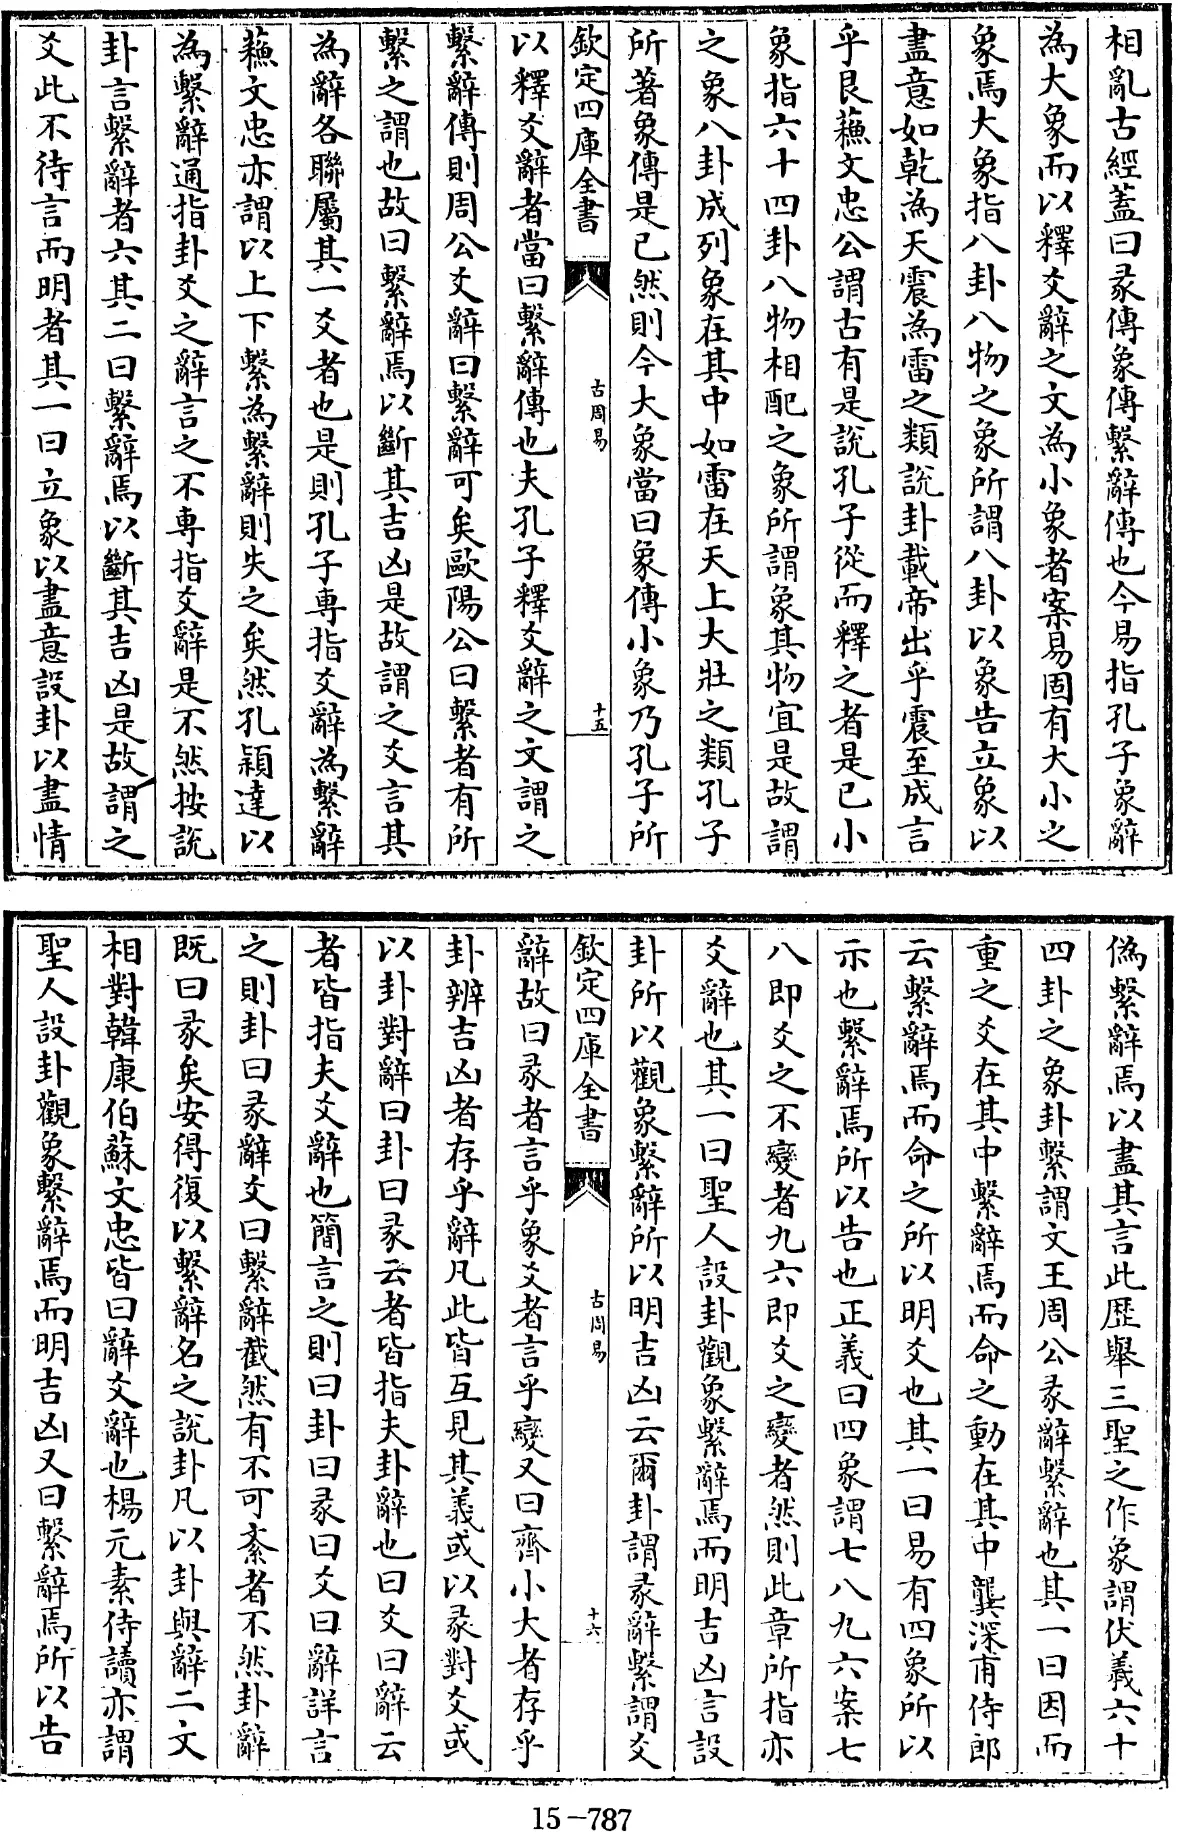 相亂古經蓋曰彖傳象傳繫辭傳也今易指孔子象辭
為大象而以釋爻辭之文為小象者案易固有大小之
象焉大象指八卦八物之象所謂八卦以象告立象以
盡意如乾為天震為雷之類說卦載帝出乎震至成言
乎艮蘓文忠公謂古有是說孔子從而釋之者是已小
象指六十四卦八物相配之象所謂象其物宜是故謂
之象八卦成列象在其中如雷在天上大壯之類孔子
所著象傳是已然則今大象當曰象傳小象乃孔子所
欽定四庫全書
古周易
十五
以釋爻辭者當曰繫辭傳也夫孔子釋爻辭之文謂之
繫辭傳則周公爻辭曰繫辭可矣歐陽公曰繫者有所
繫之謂也故曰繫辭焉以斷其吉凶是故謂之爻言其
為辭各聯屬其一爻者也是則孔子專指爻辭為繫辭
蘓文忠亦謂以上下繫為繫辭則失之矣然孔穎達以
為繫辭通指卦爻之辭言之不專指爻辭是不然按說
卦言繫辭者六其二曰繫辭焉以斷其吉凶是故謂之
爻此不待言而明者其一曰立象以盡意設卦以盡情
偽繫辭焉以盡其言此歷舉三聖之作象謂伏羲六十
四卦之象卦繫謂文王周公彖辭繫辭也其一曰因而
重之爻在其中繫辭焉而命之動在其中龔深甫侍郎
云繫辭焉而命之所以明爻也其一曰易有四象所以
示也繫辭焉所以告也正義曰四象謂七八九六案七
八即爻之不變者九六即爻之變者然則此章所指亦
爻辭也其一曰聖人設卦觀象繫辭焉而明吉凶言設
卦所以觀象繫辭所以明吉凶云爾卦謂彖辭繫謂爻
欽定四庫全書
古周易
十六
辭故曰彖者言乎象爻者言乎變又曰齊小大者存乎
卦辨吉凶者存乎辭凡此皆互見其義或以彖對爻或
以卦對辭曰卦曰彖云者皆指夫卦辭也曰爻曰辭云
者皆指夫爻辭也簡言之則曰卦曰彖曰爻曰辭詳言
之則卦曰彖辭爻曰繫辭截然有不可紊者不然卦辭
既曰彖矣安得復以繫辭名之說卦凡以卦與辭二文
相對韓康伯蘇文忠皆曰辭爻辭也楊元素侍讀亦謂
聖人設卦觀象繫辭焉而明吉凶又曰繫辭焉所以告
15-787